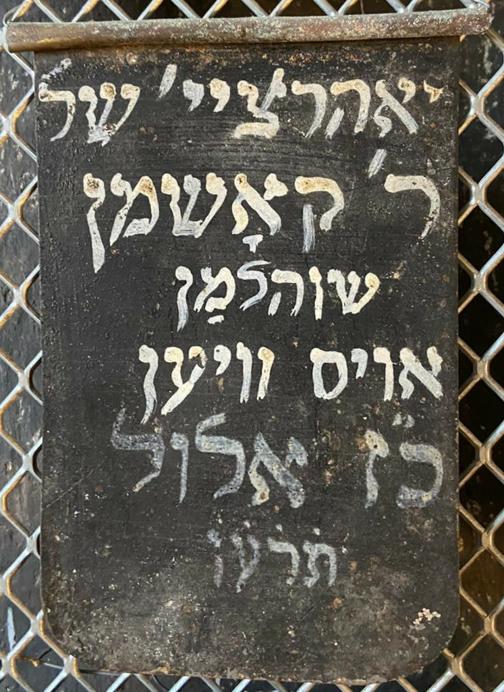 יאהרציי' של
ר' קאָשמן
שוהלמַן
אויס וויען
כ"ז אלול
תרעו